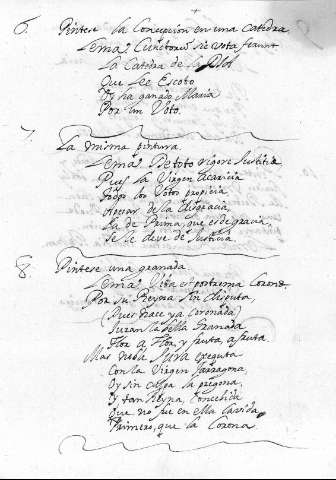 6. Pintese la Concepcion en una Catedra
Lema. Cunctorum sic vota ferunt
La Catedra de la
Que lee Escoto
Oy ha ganado Maria
Por un Voto.
7. La misma pintura
Lema. De toto rigore Justitiæ
Pues la Virgen acaricia
todos los Votos propicia
Apesar de la desgracia,
La de Prima, que es de gracia,
Se le deve de Justicia.
8. Pintese una granada
Lema. Vita est postrema Corona.
Por su Reyna sin disputa,
(Pues nace ya Coronada)
Juran la bella Granada
Flor a flor, y fruta, a fruta.
Mas nada Jura executa
Con la Virgen Tarragona
Oy sin culpa la pregona,
Y tan Reyna, Concebida
Que no fue en ella la vida
Primero, que la Corona.